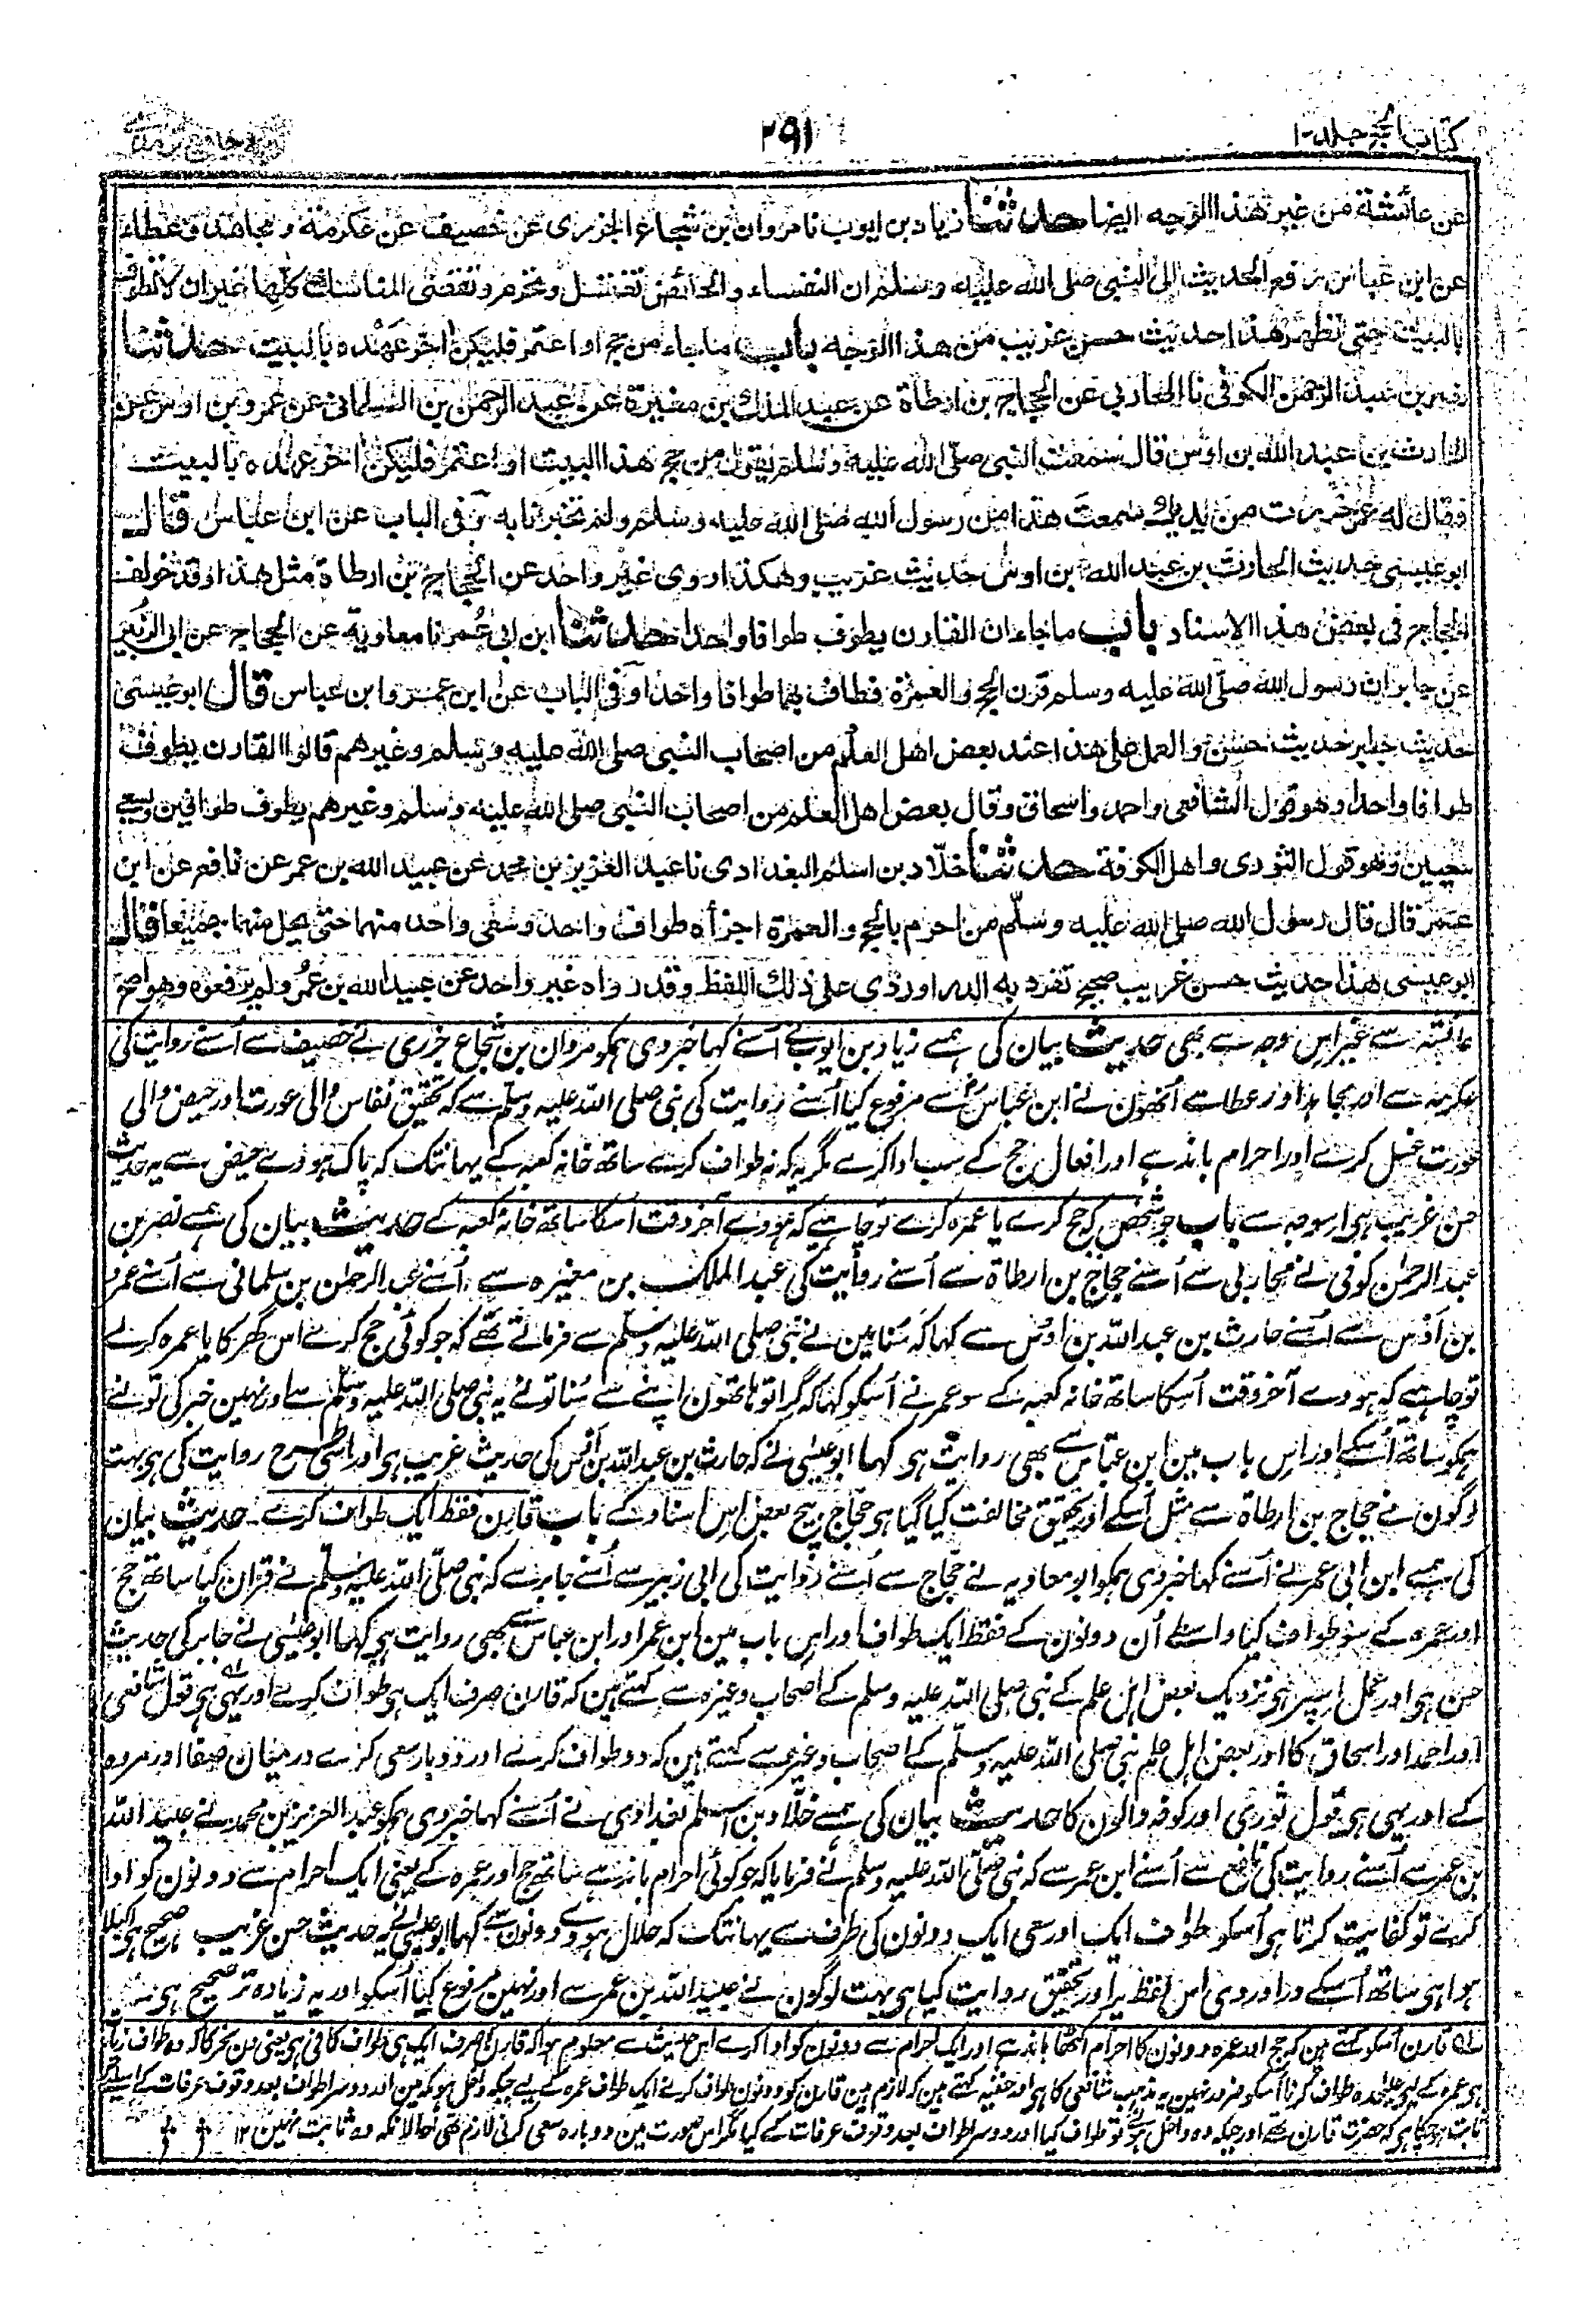 کتاب الحج جلد ۱
۲۹۱
عن عائشة من غير هذا الوجه ايضا حدثنا زياد بن ايوب نا مروان بن شجاع الجزري عن خصيف عن عكرمة و مجاهد و عطاء
عن ابن عباس رفع الحديث الى النبي صلى الله عليه وسلم ان النفساء والحائض تغتسل وتحرم وتقضي المناسك كلها غير ان لا تطوف
بالبيت حتى تطهر هذا حديث حسن غريب من هذا الوجه باب ما جاء من حج او اعتمر فليكن اخر عهده بالبيت حدثنا
نصر بن عبد الرحمن الكوفي نا المحاربي عن الحجاج بن ارطاة عن عبد الملك بن مغيرة عن عبد الرحمن بن السلماني عن عمرو بن اوس عن
الحارث بن عبد الله بن اوس قال سمعت النبي صلى الله عليه وسلم يقول من حج هذا البيت او اعتمر فليكن اخر عهده بالبيت
فقال له عمر خررت من يديك سمعت هذا من رسول الله صلى الله عليه وسلم ولم تخبرنا به وفي الباب عن ابن عباس قال
ابو عيسى حديث الحارث بن عبد الله بن اوس حديث غريب وهكذا روى غير واحد عن الحجاج بن ارطاة مثل هذا وقد خولف
الحجاج في بعض هذا الاسناد باب ما جاء ان القارن يطوف طوافا واحدا حدثنا ابن ابي عمر نا معاوية عن الحجاج عن ابي الزبير
عن جابر ان رسول الله صلى الله عليه وسلم قرن الحج والعمرة فطاف بهما طوافا واحدا وفي الباب عن ابن عمر وابن عباس قال ابو عيسى
حديث جابر حديث حسن والعمل على هذا عند بعض اهل العلم من اصحاب النبي صلى الله عليه وسلم وغيرهم قالوا القارن يطوف
طوافا واحدا وهو قول الشافعي واحمد واسحاق وقال بعض اهل العلم من اصحاب النبي صلى الله عليه وسلم وغيرهم يطوف طوافين ويسعى
سعيين وهو قول الثوري واهل الكوفة حدثنا خلاد بن اسلم البغدادي نا عبد العزيز بن محمد عن عبيد الله بن عمر عن نافع عن ابن
عمر قال قال رسول الله صلى الله عليه وسلم من احرم بالحج والعمرة اجزأه طواف واحد وسعي واحد منهما حتى يحل منهما جميعا قال
ابو عيسى هذا حديث حسن غريب صحيح تفرد به الدراوردي على ذلك اللفظ وقد رواه غير واحد عن عبيد الله بن عمر ولم يرفعوه وهو اصح
عائشہ سے غیر اس وجہ سے بھی حدیث بیان کی ہمسے زیاد بن ایوب نے اُسنے کہا خبر دی ہمکو مروان بن شجاع جزری نے خصیف سے اُسنے روایت کی
عکرمہ سے اور مجاہد اور عطا سے اُنھون نے ابن عباس سے مرفوع کیا اُسنے روایت کی نبی صلی اللہ علیہ وسلم سے کہ تحقیق نفاس والی عورت اور حیض والی
عورت غسل کرے اور احرام باندہے اور افعال حج کے سب ادا کرے مگر یہ کہ نہ طواف کرے ساتھ خانہ کعبہ کے یہانتک کہ پاک ہووے حیض سے یہ حدیث
حسن غریب ہی اس وجہ سے باب جو شخص کہ حج کرے یا عمرہ کرے تو چاہیے کہ ہووے آخر وقت اُسکا ساتھ خانہ کعبہ کے حدیث بیان کی ہمسے نصر بن
عبد الرحمٰن کوفی نے محاربی سے اُسنے حجاج بن ارطاة سے اُسنے روایت کی عبد الملک بن مغیرہ سے اُسنے عبد الرحمٰن بن سلمانی سے اُسنے عمرو
بن اَوس سے اُسنے حارث بن عبد اللہ بن اوس سے کہا کہ سُنا مین نے نبی صلی اللہ علیہ وسلم سے فرماتے تھے کہ جو کوئی حج کرے اس گھر کا یا عمرہ کرے
تو چاہیے کہ ہووے آخر وقت اُسکا ساتھ خانہ کعبہ کے سو عمر نے اُسکو کہا کہ گرا تو ہاتھون اپنے سے سُنا تونے یہ نبی صلی اللہ علیہ وسلم سے اور نہین خبر کی تونے
ہمکو ساتھ اُسکے اور اس باب مین ابن عباس سے بھی روایت ہی کہا ابو عیسیٰ نے کہ حارث بن عبد اللہ بن اَوس کی حدیث غریب ہی اور اسی طرح روایت کی ہی بہت
لوگون نے حجاج بن ارطاة سے مثل اُسکے اور تحقیق مخالفت کیا گیا ہی حجاج بیچ بعض اس اسناد کے باب قارن فقط ایک طواف کرے حدیث بیان
کی ہمسے ابن ابی عمر نے اُسنے کہا خبر دی ہمکو ابو معاویہ نے حجاج سے اُسنے روایت کی ابی زبیر سے اُسنے جابر سے کہ نبی صلی اللہ علیہ وسلم نے قران کیا ساتھ حج
اور عمرہ کے سو طواف کیا واسطے اُن دونون کے فقط ایک طواف اور اس باب مین ابن عمر اور ابن عباس سے بھی روایت ہی کہا ابو عیسیٰ نے جابر کی حدیث
حسن ہی اور عمل اسپر ہی نزدیک بعض اہل علم کے نبی صلی اللہ علیہ وسلم کے اصحاب وغیرہ سے کہتے ہین کہ قارن صرف ایک ہی طواف کرے اور یہی ہی قول شافعی
اور احمد اور اسحاق کا اور بعض اہل علم نبی صلی اللہ علیہ وسلم کے اصحاب وغیرہ سے کہتے ہین کہ دو طواف کرے اور دو بار سعی کرے درمیان صفا اور مروہ
کے اور یہی ہی قول ثوری اور کوفہ والون کا حدیث بیان کی ہمسے خلاد بن اسلم بغدادی نے اُسنے کہا خبر دی ہمکو عبد العزیز بن محمد نے عبید اللہ
بن عمر سے اُسنے روایت کی نافع سے اُسنے ابن عمر سے کہ نبی صلی اللہ علیہ وسلم نے فرمایا کہ جو کوئی احرام باندہے ساتھ حج اور عمرہ کے یعنی ایک احرام سے دونون کو ادا
کرے تو کفایت کرتا ہی اُسکو طواف ایک اور سعی ایک دونون کی طرف سے یہانتک کہ حلال ہووے دونون سے کہا ابو عیسیٰ نے یہ حدیث حسن غریب صحیح ہی اکیلا
ہوا ہی ساتھ اُسکے دراوردی اس لفظ پر اور تحقیق روایت کیا ہی بہت لوگون نے عبید اللہ بن عمر سے اور نہین مرفوع کیا اُسکو اور یہ زیادہ تر صحیح ہی
قارن اُسکو کہتے ہین کہ حج اور عمرہ دونون کا احرام اکٹھا باندہے اور ایک احرام سے دونون کو ادا کرے اس حدیث سے معلوم ہوا کہ قارن کو صرف ایک ہی طواف کافی ہی یعنی دن نحر کا کہ وہ طواف زیارت
ہی عمرہ کے لیے علیحدہ طواف کرنا اُسکو ضرور نہین یہ مذہب شافعی کا ہی اور حنفیہ کہتے ہین کہ لازم ہین قارن کو دو طواف کرنے ایک طواف عمرہ کے لیے جبکہ داخل ہو مکہ مین اور دوسرا طواف بعد وقوف عرفات کے
ثابت ہوچکا ہی کہ حضرت قارن تھے اور جبکہ وہ داخل ہوئے تو طواف کیا اور دوسرا طواف بعد وقوف عرفات کے کیا مگر اس صورت مین دوبارہ سعی کرنی لازم تھی حالانکہ وہ ثابت نہین ۱۲